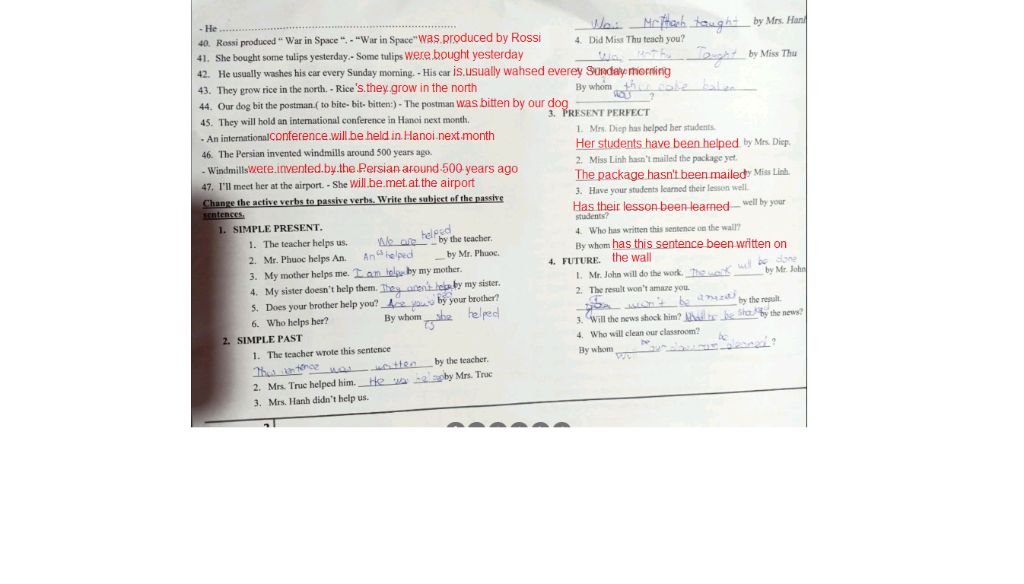 - He ................................................
40. Rossi produced “ War in Space “. - “War in Space” was produced by Rossi
41. She bought some tulips yesterday.- Some tulips were bought yesterday
42. He usually washes his car every Sunday morning. - His car is usually wahsed everey Sunday morning
43. They grow rice in the north. - Rice 's they grow in the north
44. Our dog bit the postman.( to bite- bit- bitten:) - The postman was bitten by our dog
45. They will hold an international conference in Hanoi next month.
- An international conference will be held in Hanoi next month
46. The Persian invented windmills around 500 years ago.
- Windmills were invented by the Persian around 500 years ago
47. I'll meet her at the airport. - She will be met at the airport
Change the active verbs to passive verbs. Write the subject of the passive
sentences.
1. SIMPLE PRESENT.
1. The teacher helps us. We are helped by the teacher.
2. Mr. Phuoc helps An. An is helped by Mr. Phuoc.
3. My mother helps me. I am helped by my mother.
4. My sister doesn't help them. They aren't helped by my sister.
5. Does your brother help you? Are you by your brother?
6. Who helps her? By whom is she helped
2. SIMPLE PAST
1. The teacher wrote this sentence
This sentence was written by the teacher.
2. Mrs. Truc helped him. He was helped by Mrs. Truc
3. Mrs. Hanh didn't help us.
Was Mr Hanh taught by Mrs. Hanh
4. Did Miss Thu teach you?
Was Thu Taught by Miss Thu
By whom was this cake ?
3. PRESENT PERFECT
1. Mrs. Diep has helped her students.
Her students have been helped by Mrs. Diep.
2. Miss Linh hasn't mailed the package yet.
The package hasn't been mailed by Miss Linh.
3. Have your students learned their lesson well.
Has their lesson been learned well by your
students?
4. Who has written this sentence on the wall?
By whom has this sentence been written on
the wall
4. FUTURE.
1. Mr. John will do the work. The work will be done by Mr. John
2. The result won't amaze you.
won't be amazed by the result.
3. Will the news shock him? be shocked by the news?
4. Who will clean our classroom?
By whom will be our classroom be cleaned ?